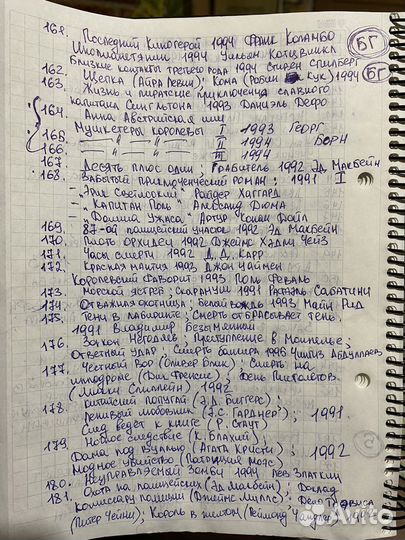 161. Последний киногерой 1994 Франк Коламбо
Инопланетянин 1994 Уильям Котцвинкл БГ
Близкие контакты третьего рода 1994 Стивен Спилберг
162. Щепка (Айра Левин); Кома (Робин Кук) 1994 БГ
163. Жизнь и пиратские приключения славного
капитана Сингльтона 1993 Даниэль Дефо
164. Анна Австрийская или
Мушкетеры королевы I 1993 Георг
165. —"— —"— II 1994 Борн
166. —"— —"— III 1994
167. Десять плюс один; Грабитель 1992 Эд Макбейн
168. Забытый приключенческий роман: 1991 II
- "Эрик Светлоокий" Райдер Хаггард
- "Капитан Поль" Александр Дюма
- "Долина Ужаса" Артур Конан Дойл
169. 87-ой полицейский участок 1992 Эд Макбейн
170. Плоть орхидеи 1992 Джеймс Хэдли Чейз
171. Часы смерти 1992 Д. Д. Карр
172. Красная мантия 1993 Джон Уаймен
Королевский фаворит 1993 Поль Феваль
173. Морской ястреб; Скарамуш 1991 Рафаэль Сабатини
174. Отважная охотница; Белый вождь 1993 Майн Рид
175. Тени в лабиринте; Смерть отбрасывает тень
1991 Владимир Безымянный
176. Закон негодяев; Преступление в Монпелье;
Ответный удар; Смерть балкира 1996 Чингиз Абдуллаев
177. Честный вор; Смерть на
ипподроме (Дик Френсис); День пистолетов
(Микки Спиллейн) 1992
178. Китайский попугай (Э.Д. Биггерс);
Ленивый любовник (Э.С. Гарднер); 1991
След ведет к книге (Р. Стаут)
179. Новое следствие (К. Блахий);
Дама под вуалью (Агата Кристи); 1992
Модное убийство (Патриция Мойс)
180. Неуправляемый Зомби 1994 Лев Златкин
181. Охота на полицейских (Эд Макбейн); Доклад
комиссару полиции (Джеймс Миллс); Дело Дэвиса
(Питер Чейни); Король в желтом (Реймонд Чандлер)
Avito